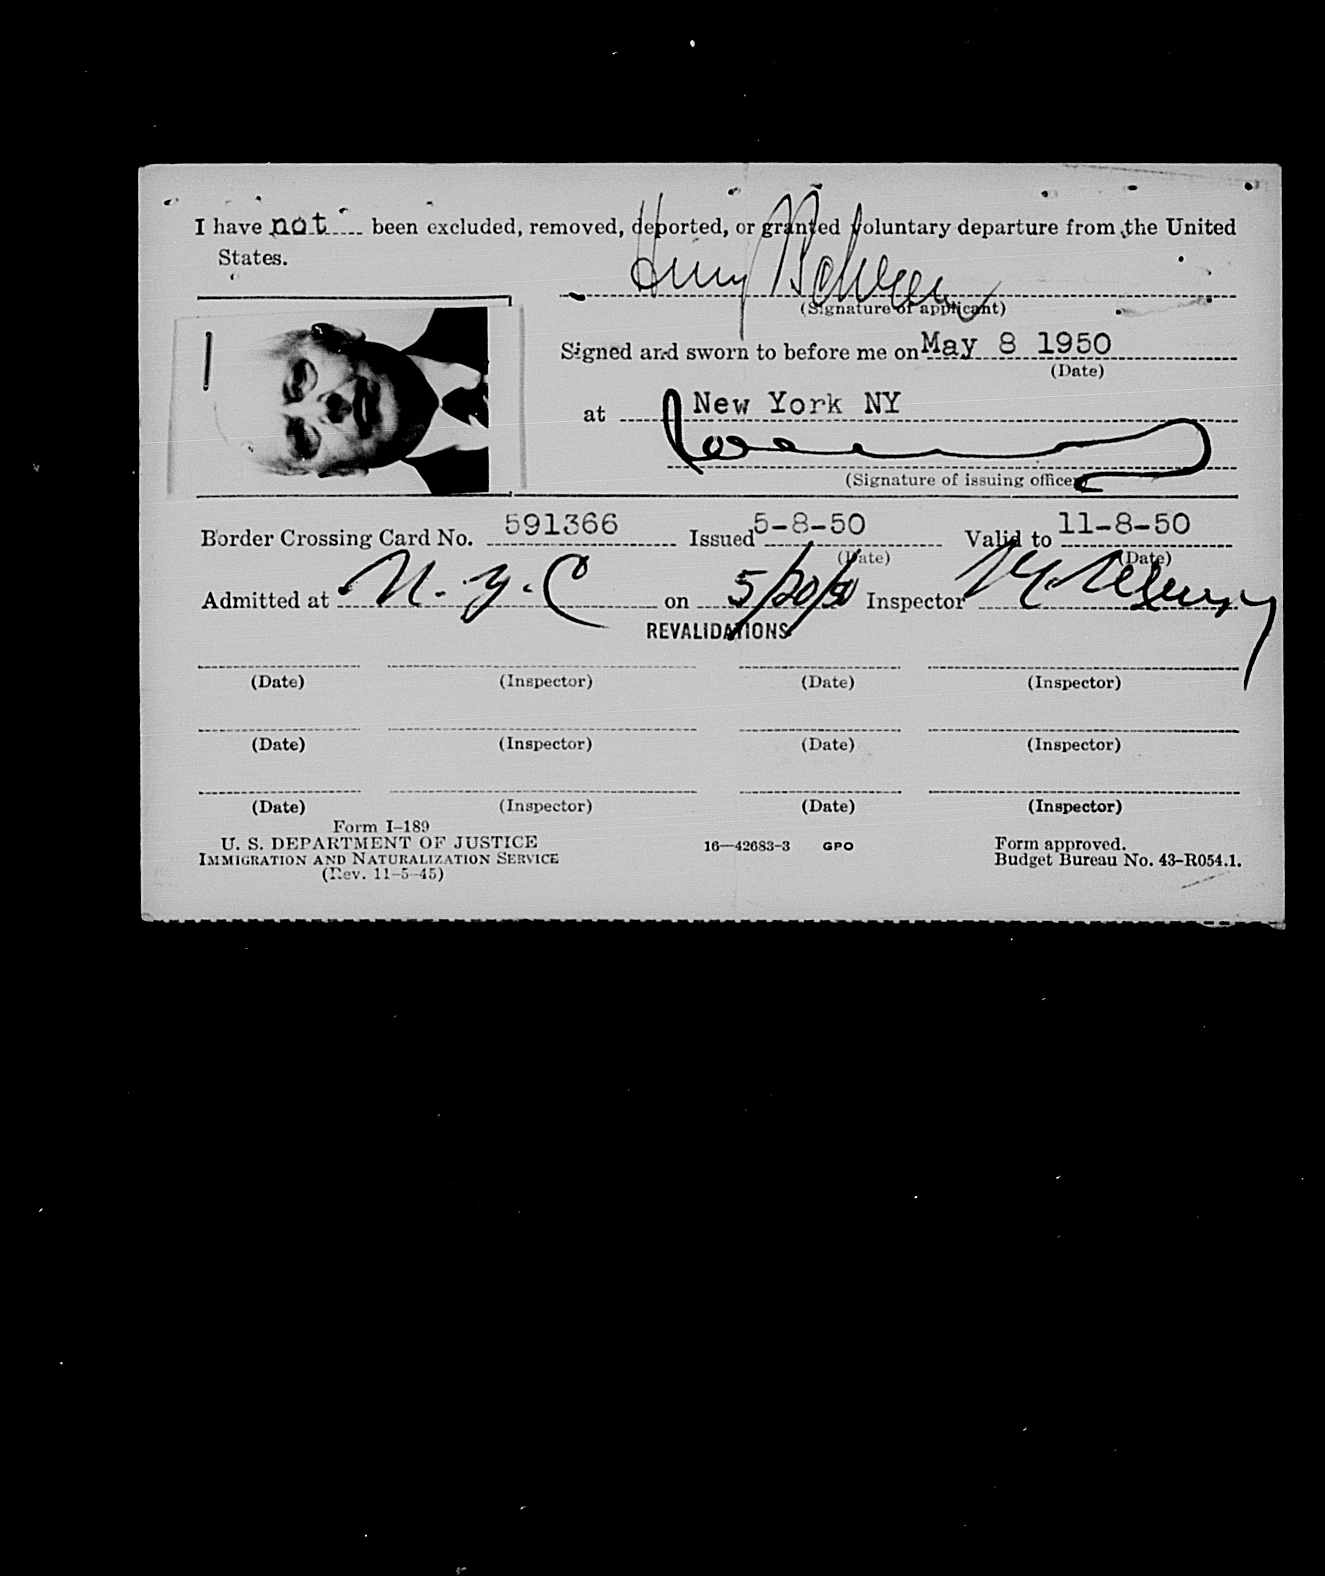 I have not been excluded, removed, deported, or granted voluntary departure from the United
States.
Henry
(Signature of applicant)
Signed and sworn to before me on May 8 1950
(Date)
at New York NY
(Signature of issuing officer)
Border Crossing Card No. 591366 Issued 5-8-50 Valid to 11-8-50
(Date) (Date)
Admitted at N.Y.C on 5/20/50 Inspector
REVALIDATIONS
(Date) (Inspector) (Date) (Inspector)
(Date) (Inspector) (Date) (Inspector)
(Date) (Inspector) (Date) (Inspector)
Form I-189
U. S. DEPARTMENT OF JUSTICE
IMMIGRATION AND NATURALIZATION SERVICE
(Rev. 11-5-45)
16—42683-3 GPO
Form approved.
Budget Bureau No. 43-R054.1.